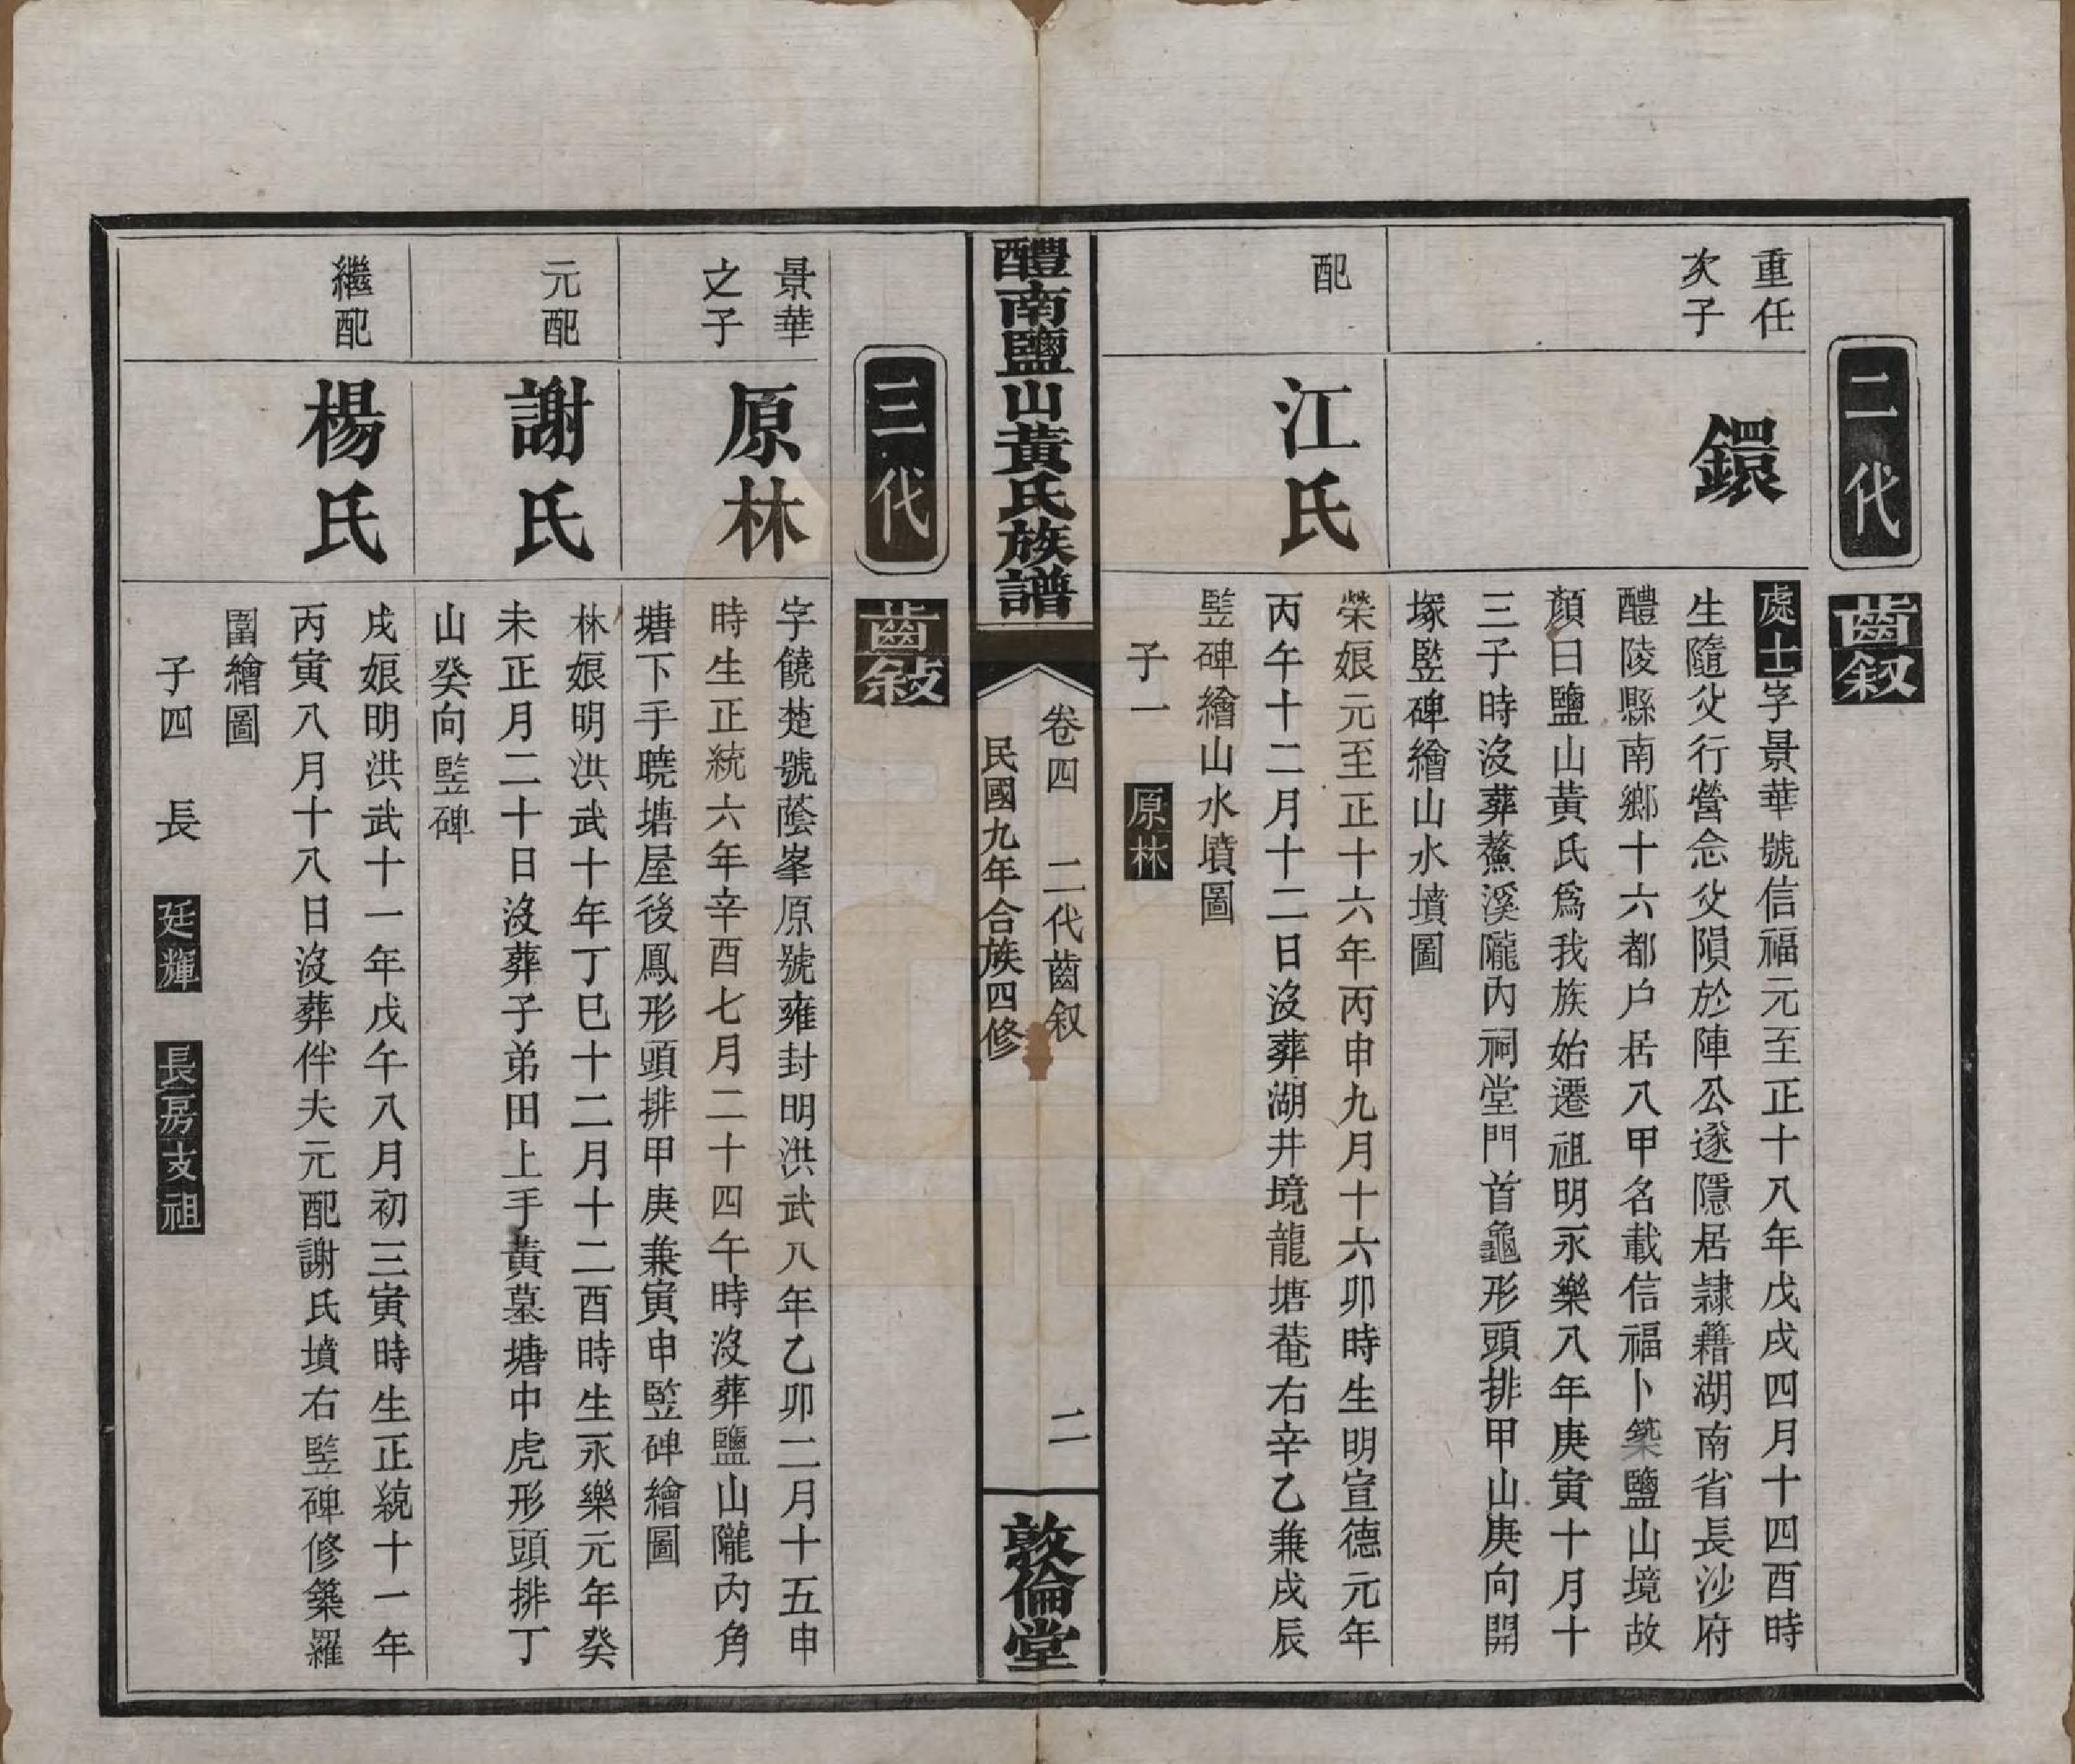 二代
齒叙
重任
次子
鐶
處士字景華號信福元至正十八年戊戌四月十四酉時
生隨父行營念父隕於陣公遂隱居隷籍湖南省長沙府
醴陵縣南鄉十六都戶居八甲名載信福卜築鹽山境故
顏曰鹽山黃氏爲我族始遷祖明永樂八年庚寅十月十
三子時沒葬鰲溪隴內祠堂門首龜形頭排甲山庚向開
塚竪碑繪山水墳圖
配
江氏
榮娘元至正十六年丙申九月十六卯時生明宣德元年
丙午十二月十二日沒葬湖井境龍塘菴右辛乙兼戌辰
竪碑繪山水墳圖
子一 原林
醴南鹽山黃氏族譜
卷四 二代齒叙 二
民國九年合族四修
敦倫堂
三代
齒敍
景華
之子
原林
字饒楚號蔭峯原號雍封明洪武八年乙卯二月十五申
時生正統六年辛酉七月二十四午時沒葬鹽山隴內角
塘下手曉塘屋後鳳形頭排甲庚兼寅申竪碑繪圖
元配
謝氏
林娘明洪武十年丁巳十二月十二酉時生永樂元年癸
未正月二十日沒葬子弟田上手黃墓塘中虎形頭排丁
山癸向竪碑
繼配
楊氏
戌娘明洪武十一年戊午八月初三寅時生正統十一年
丙寅八月十八日沒葬伴夫元配謝氏墳右竪碑修築羅
圍繪圖
子四 長 廷輝 長房支祖